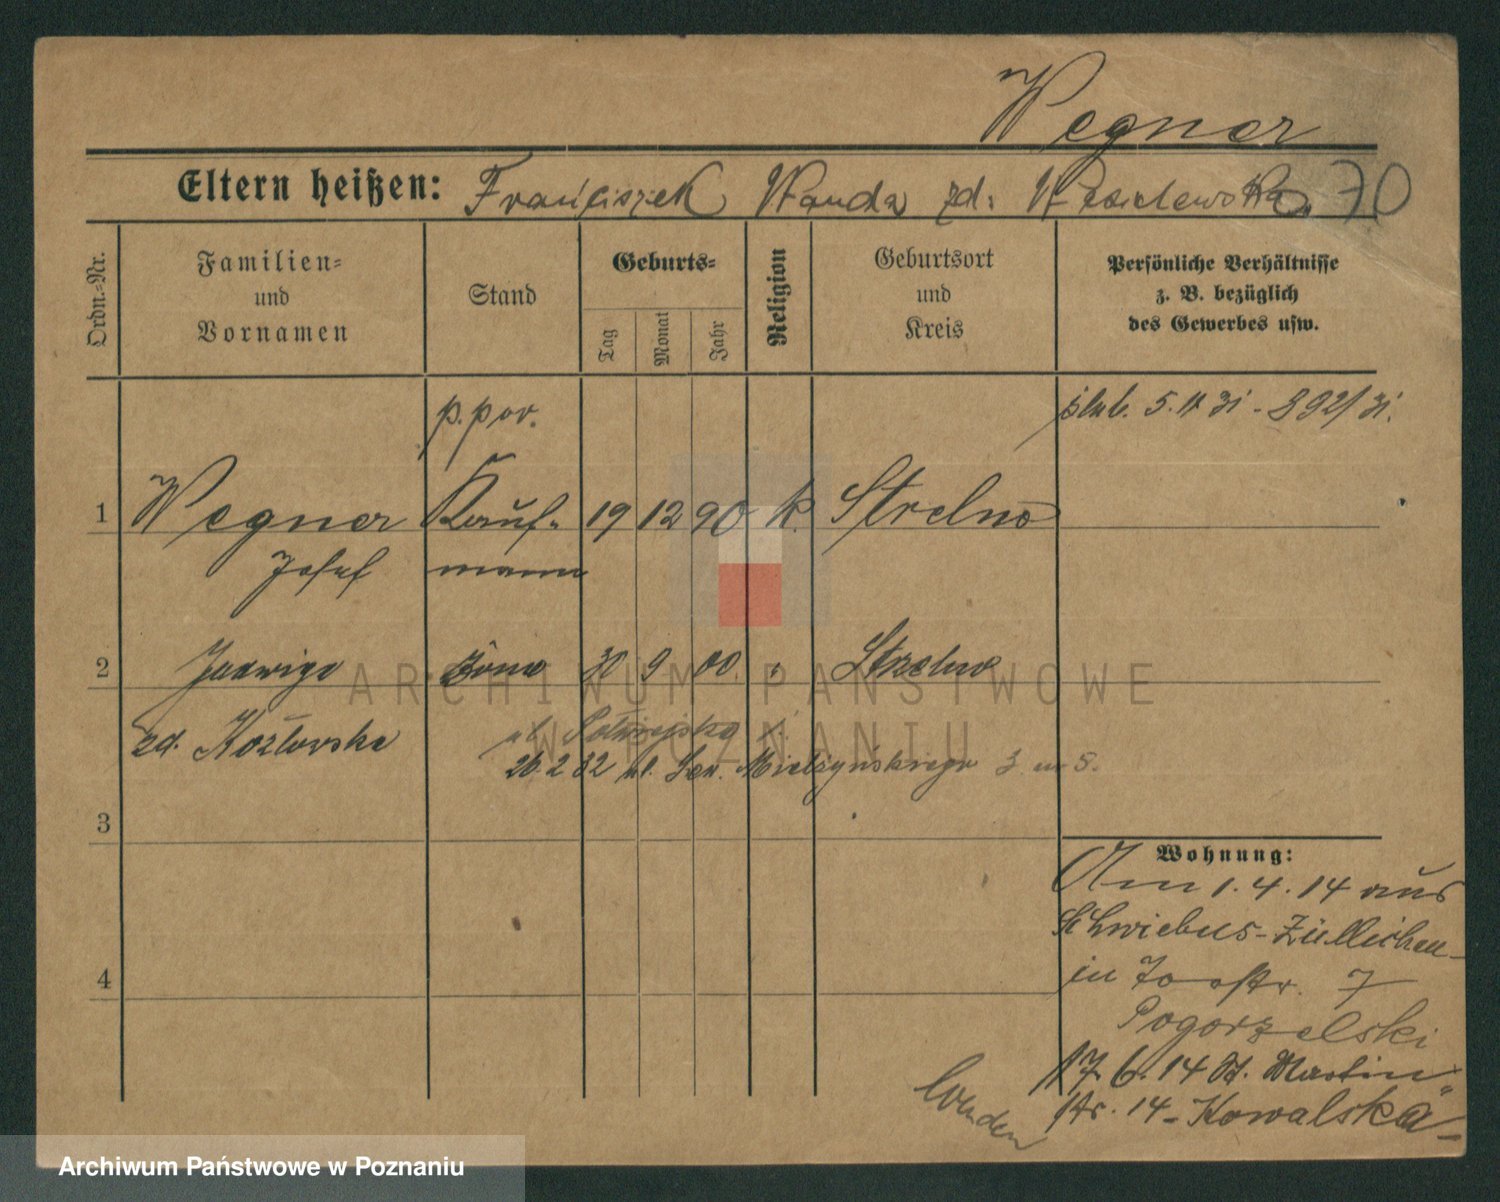 Wegner
Eltern heißen: Franciszek Wanda zd. 70
Ordn.-Nr.
Familien-
und
Vornamen
Stand
Geburts-
Tag
Monat
Jahr
Religion
Geburtsort
und
Kreis
Persönliche Verhältnisse
z. B. bezüglich
des Gewerbes usw.
p. por.
ślub. 5. 11 31 - 892/31.
1 Wegner Kauf- 19 12 90 k. Strelno
Josef mann
2 Jadwiga żona 30 9 00. " Strelno
zd. Kozłowska
ul.
26. 2 32 ul. Sew. Mielżyńskiego 3 m 8.
3
4
Wohnung:
Am 1. 4. 14 aus
Schwiebus-Züllichau
in 7
Pogorzelski
17. 6. 14 St. Martin
str. 14 - Kowalska -
wenden
ARCHIWUM PAŃSTWOWE
W POZNANIU
Archiwum Państwowe w Poznaniu